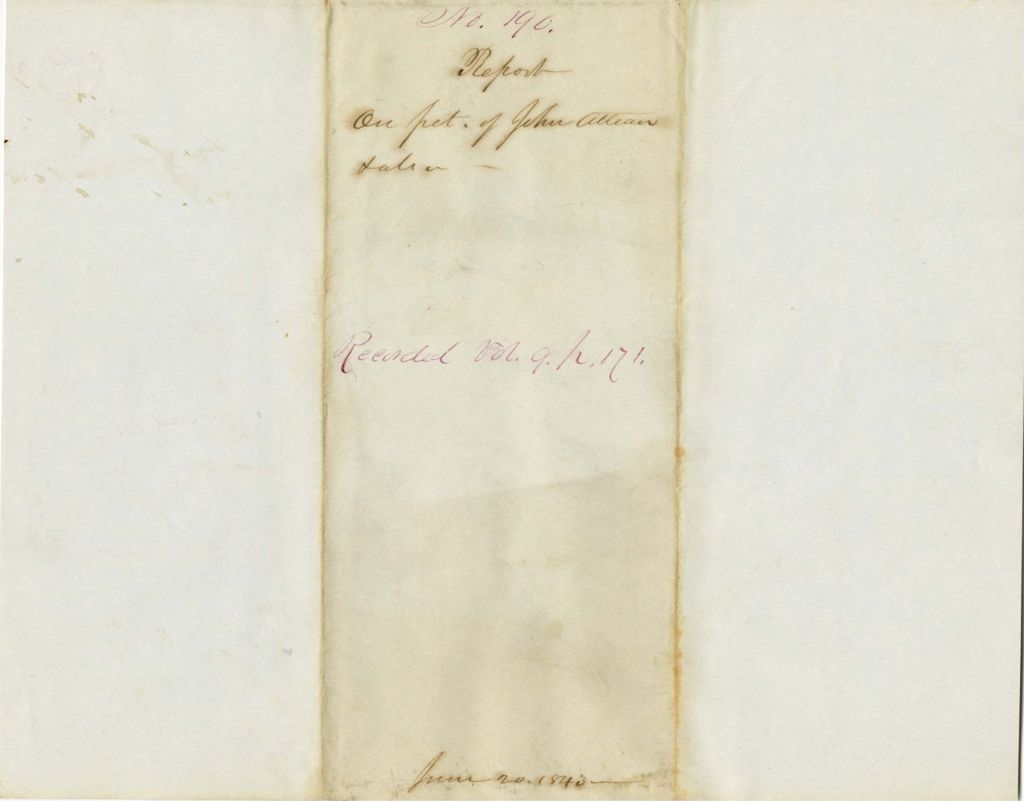 No. 190.
Report
On pet. of John Attean
& als
Recorded Vol. 9. p. 171.
June 20. 1843